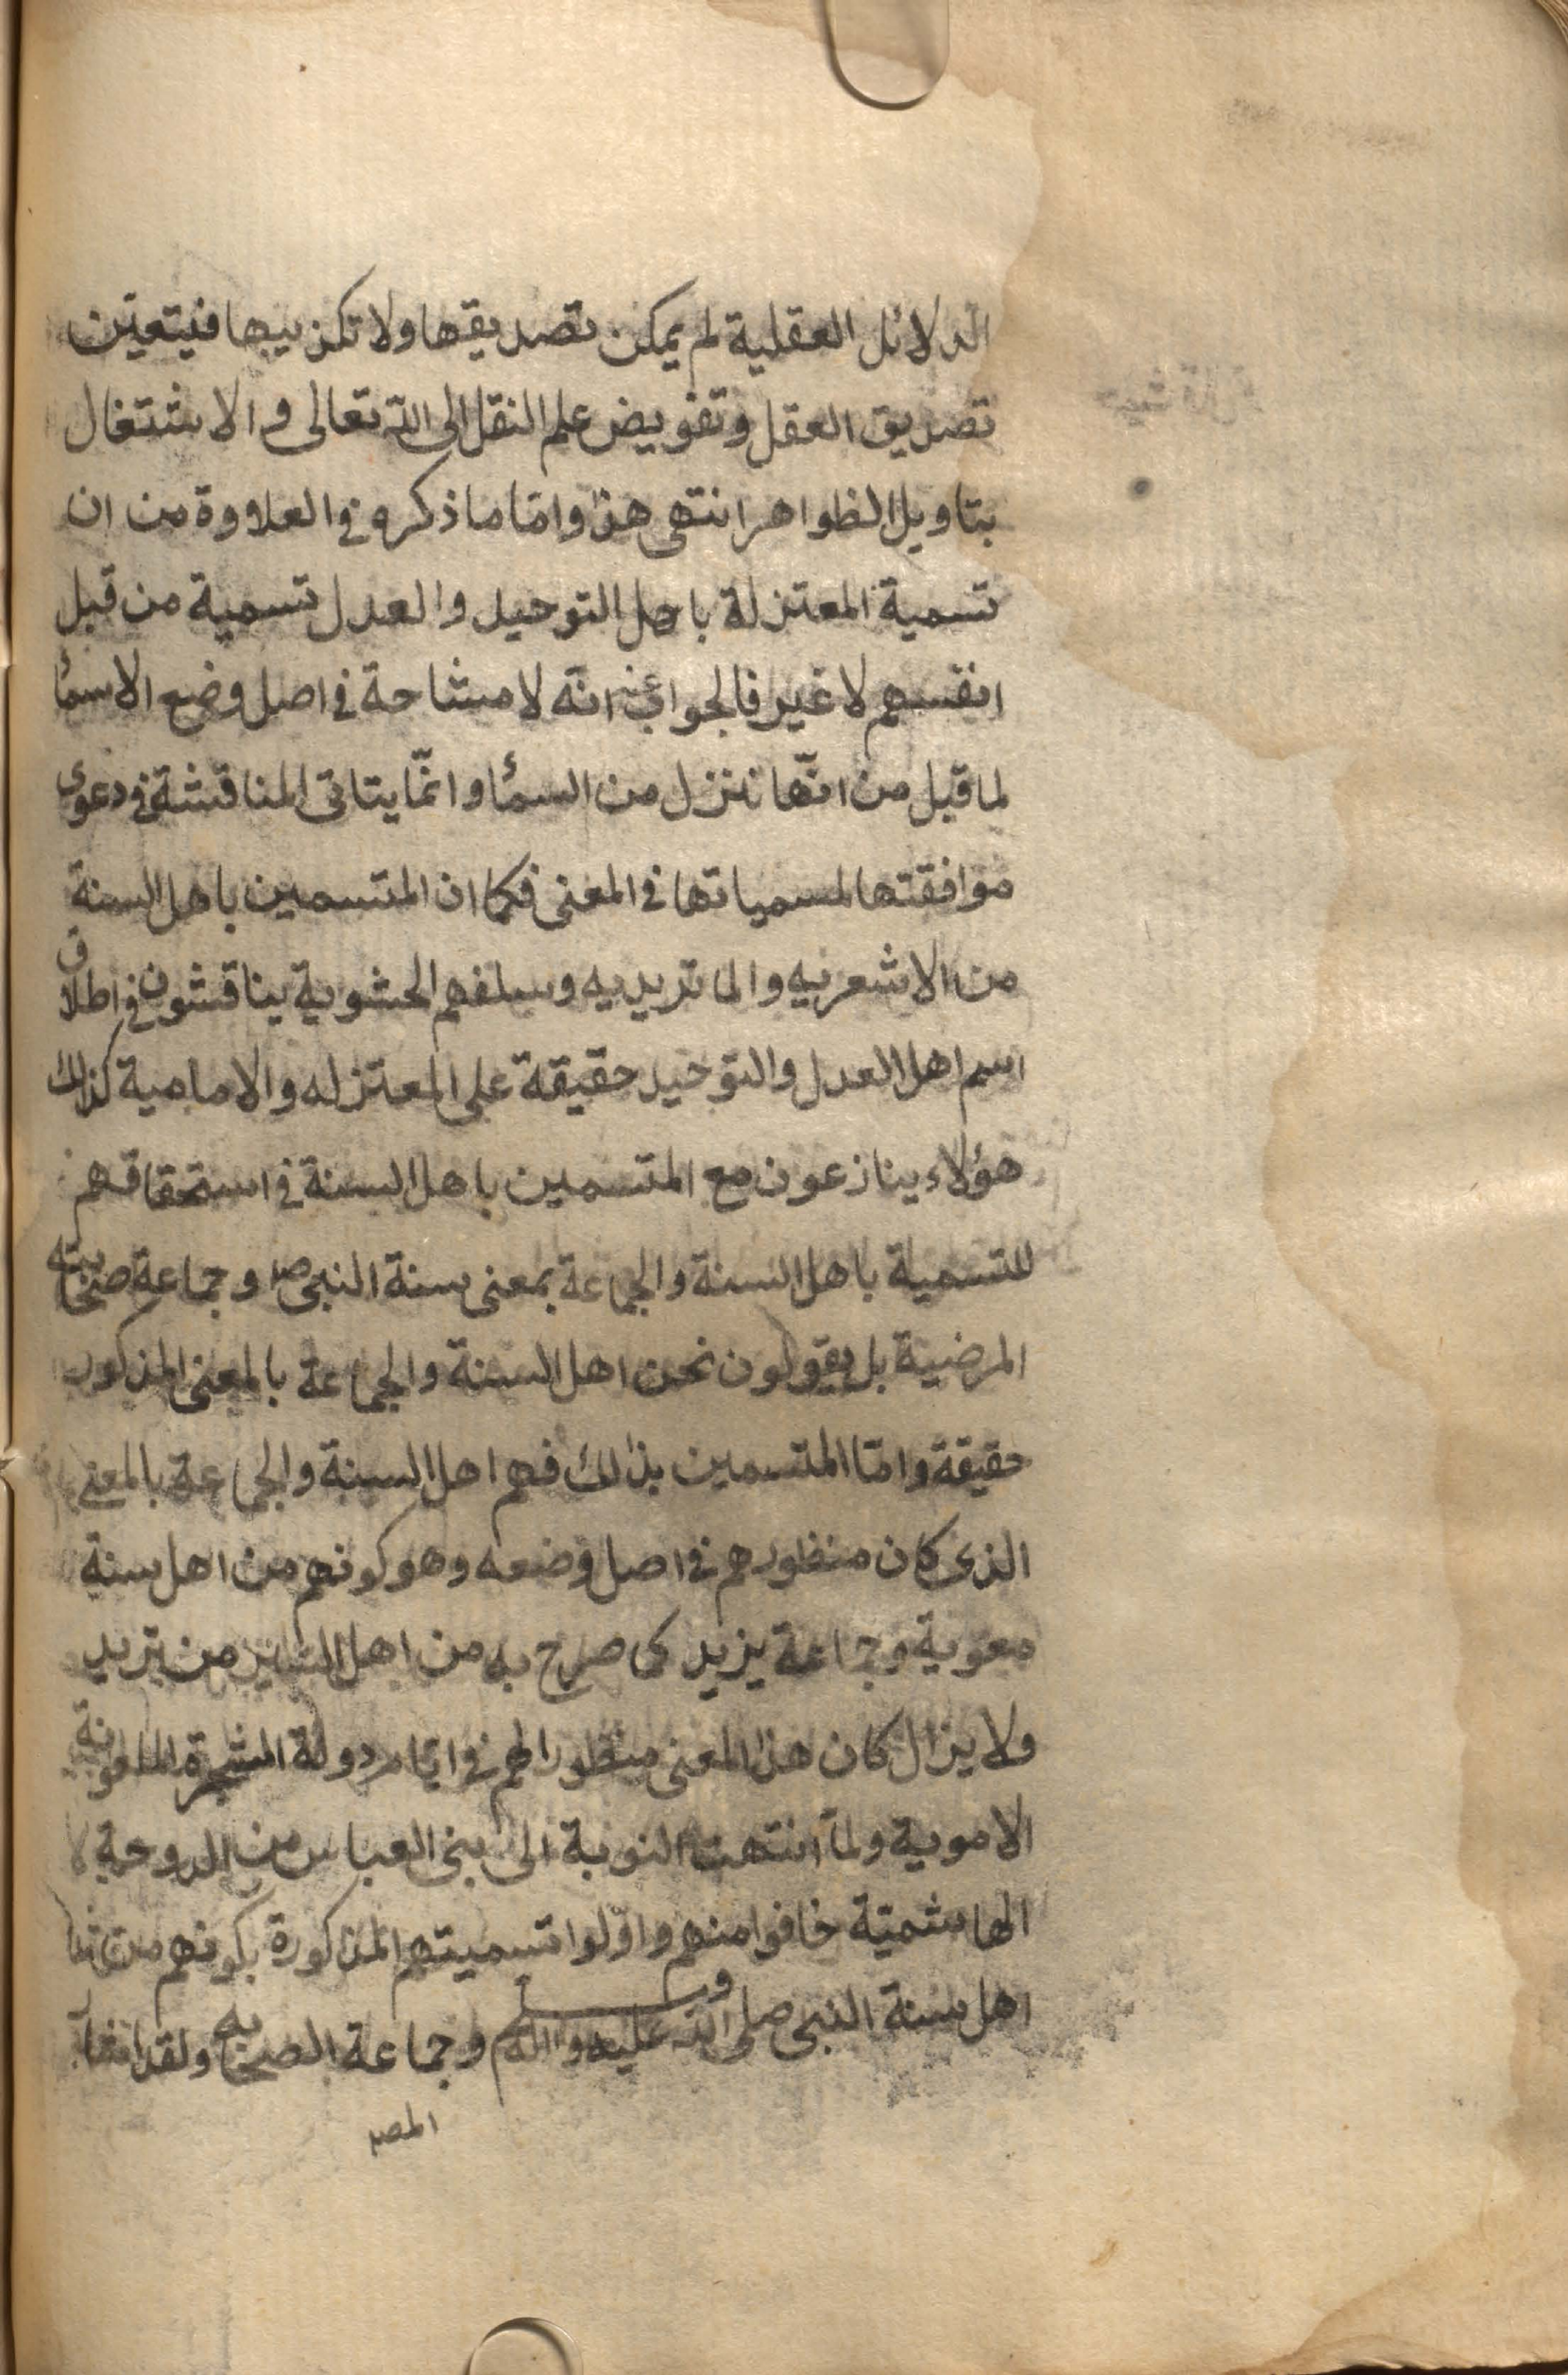 الدلائل العقلية لم يمكن تصديقها ولا تكذيبها فيتعين
تصديق العقل وتفويض علم النقل الى الله تعالى و الاشتغال
بتاويل الظواهر انتهى هذا واما ما ذكره في العلاوة من ان
تسمية المعتزلة باهل التوحيد والعدل تسمية من قبل
انفسهم لا غير فالجواب عنه انه لا مشاحة في اصل وضع الاسمآ
لما قيل من انّها تنزل من السمآ وانّما يتاتى المناقشة في دعوى
موافقتها لمسمياتها في المعنى فكما ان المتسمين باهل السنة
من الاشعريه والماتريديه وسلفهم الحشوية يناقشون في اطلاق
اسم اهل العدل والتوحيد حقيقة على المعتزله والامامية كذلك
هؤلاء ينازعون مع المتسمين باهل السنة في استحقاقهم
للتسمية باهل السنة والجماعة بمعنى سنة النبي ص وجماعة صحابته
المرضية بل يقولون نحن اهل السنة والجماعة بالمعنى المذكور
حقيقة واما المتسمين بذلك فهم اهل السنة والجماعة بالمعنى
الذى كان منظورهم في اصل وضعه وهو كونهم من اهل سنة
معوية وجماعة يزيد كما صرح به من اهل من يزيد
ولا يزال كان هذا المعنى منظورا لهم في ايام دولة الشجرة الملعونة
الاموية ولما انتهت النوبة الى بنى العباس من الدوحة
الهاشمية خافوا منهم واوّلوا تسميتهم المذكورة بكونهم من
اهل سنة النبي صلى الله عليه واله وسلم وجماعة الصحابه ولقد
المص